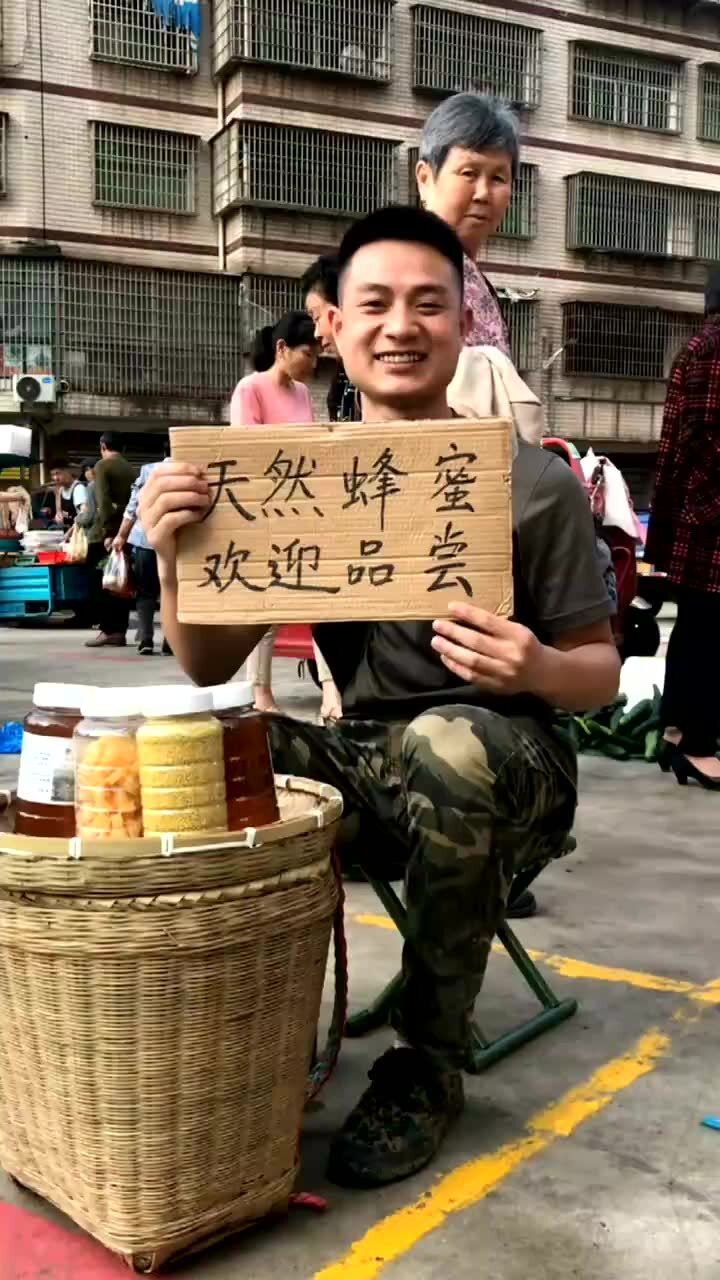 天然蜂蜜
欢迎品尝